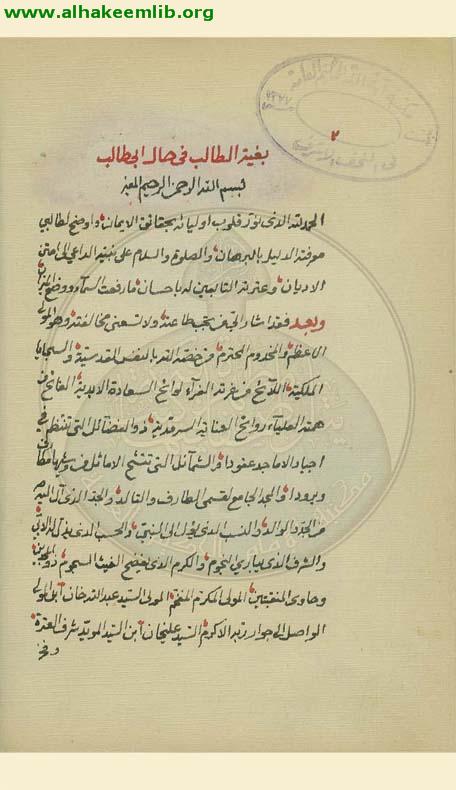 www.alhakeemlib.org
٢
بغية الطالب فى حال ابى طالب
بسم الله الرحمن الرحيم
الحمد لله الذى نوّر قلوب اوليائه بحقائق الايمان واوضح لطالبي
معرفته الدليل بالبرهان والصلوة والسلام على نبيه الداعي الى
الاديان وعترته التابعين له باحسان ما رفعت السمآء ووضع الميزان
وبعد فقد اشار الىّ من طاعته ولا تسعنى مخالفته وهو المولى
الاعظم والمخدوم المحترم من خصّه الله بالنفس القدسية والسجايا
الملكية اللائح من غرته الغرآء لوائح السعادة الابدية الفائح من
همته العليآء روائح العناية السرمدية ذو الفضائل التى تنتظم فى
اجياد الاماجد عقودا والشمائل التى
وبرودا والمجد الجامع لقسمى الطارف والتالد والجد الذى آل اليه
من الجد والوالد والنسب الذى يؤل الى النبى والحسب الذى
والشرف الذى يبارى النجوم والكرم الذى يفضح الغيث السجوم
وحاوى المنقبتين المولى المكرم المفخم المولى السيد عبد الله خان ابن المولى
الواصل الى جوار ربه الاكرم السيد عليخان ابن السيد المؤيد شرف العترة